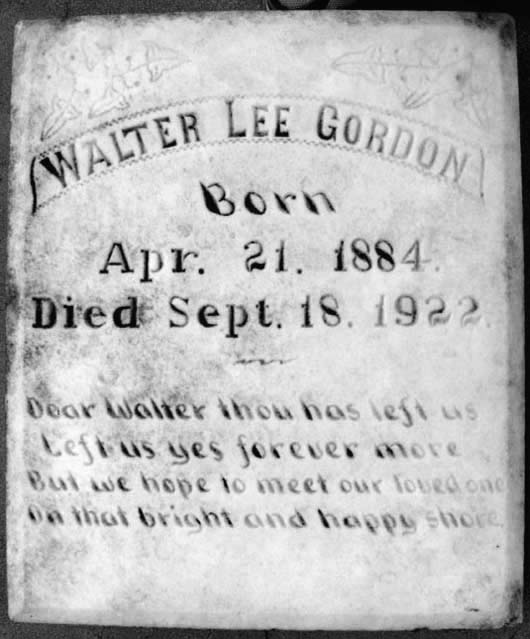 WALTER LEE GORDON
Born
Apr. 21. 1884.
Died Sept. 18. 1922.
Dear Walter thou has left us
Left us yes forever more
But we hope to meet our loved one
On that bright and happy shore.